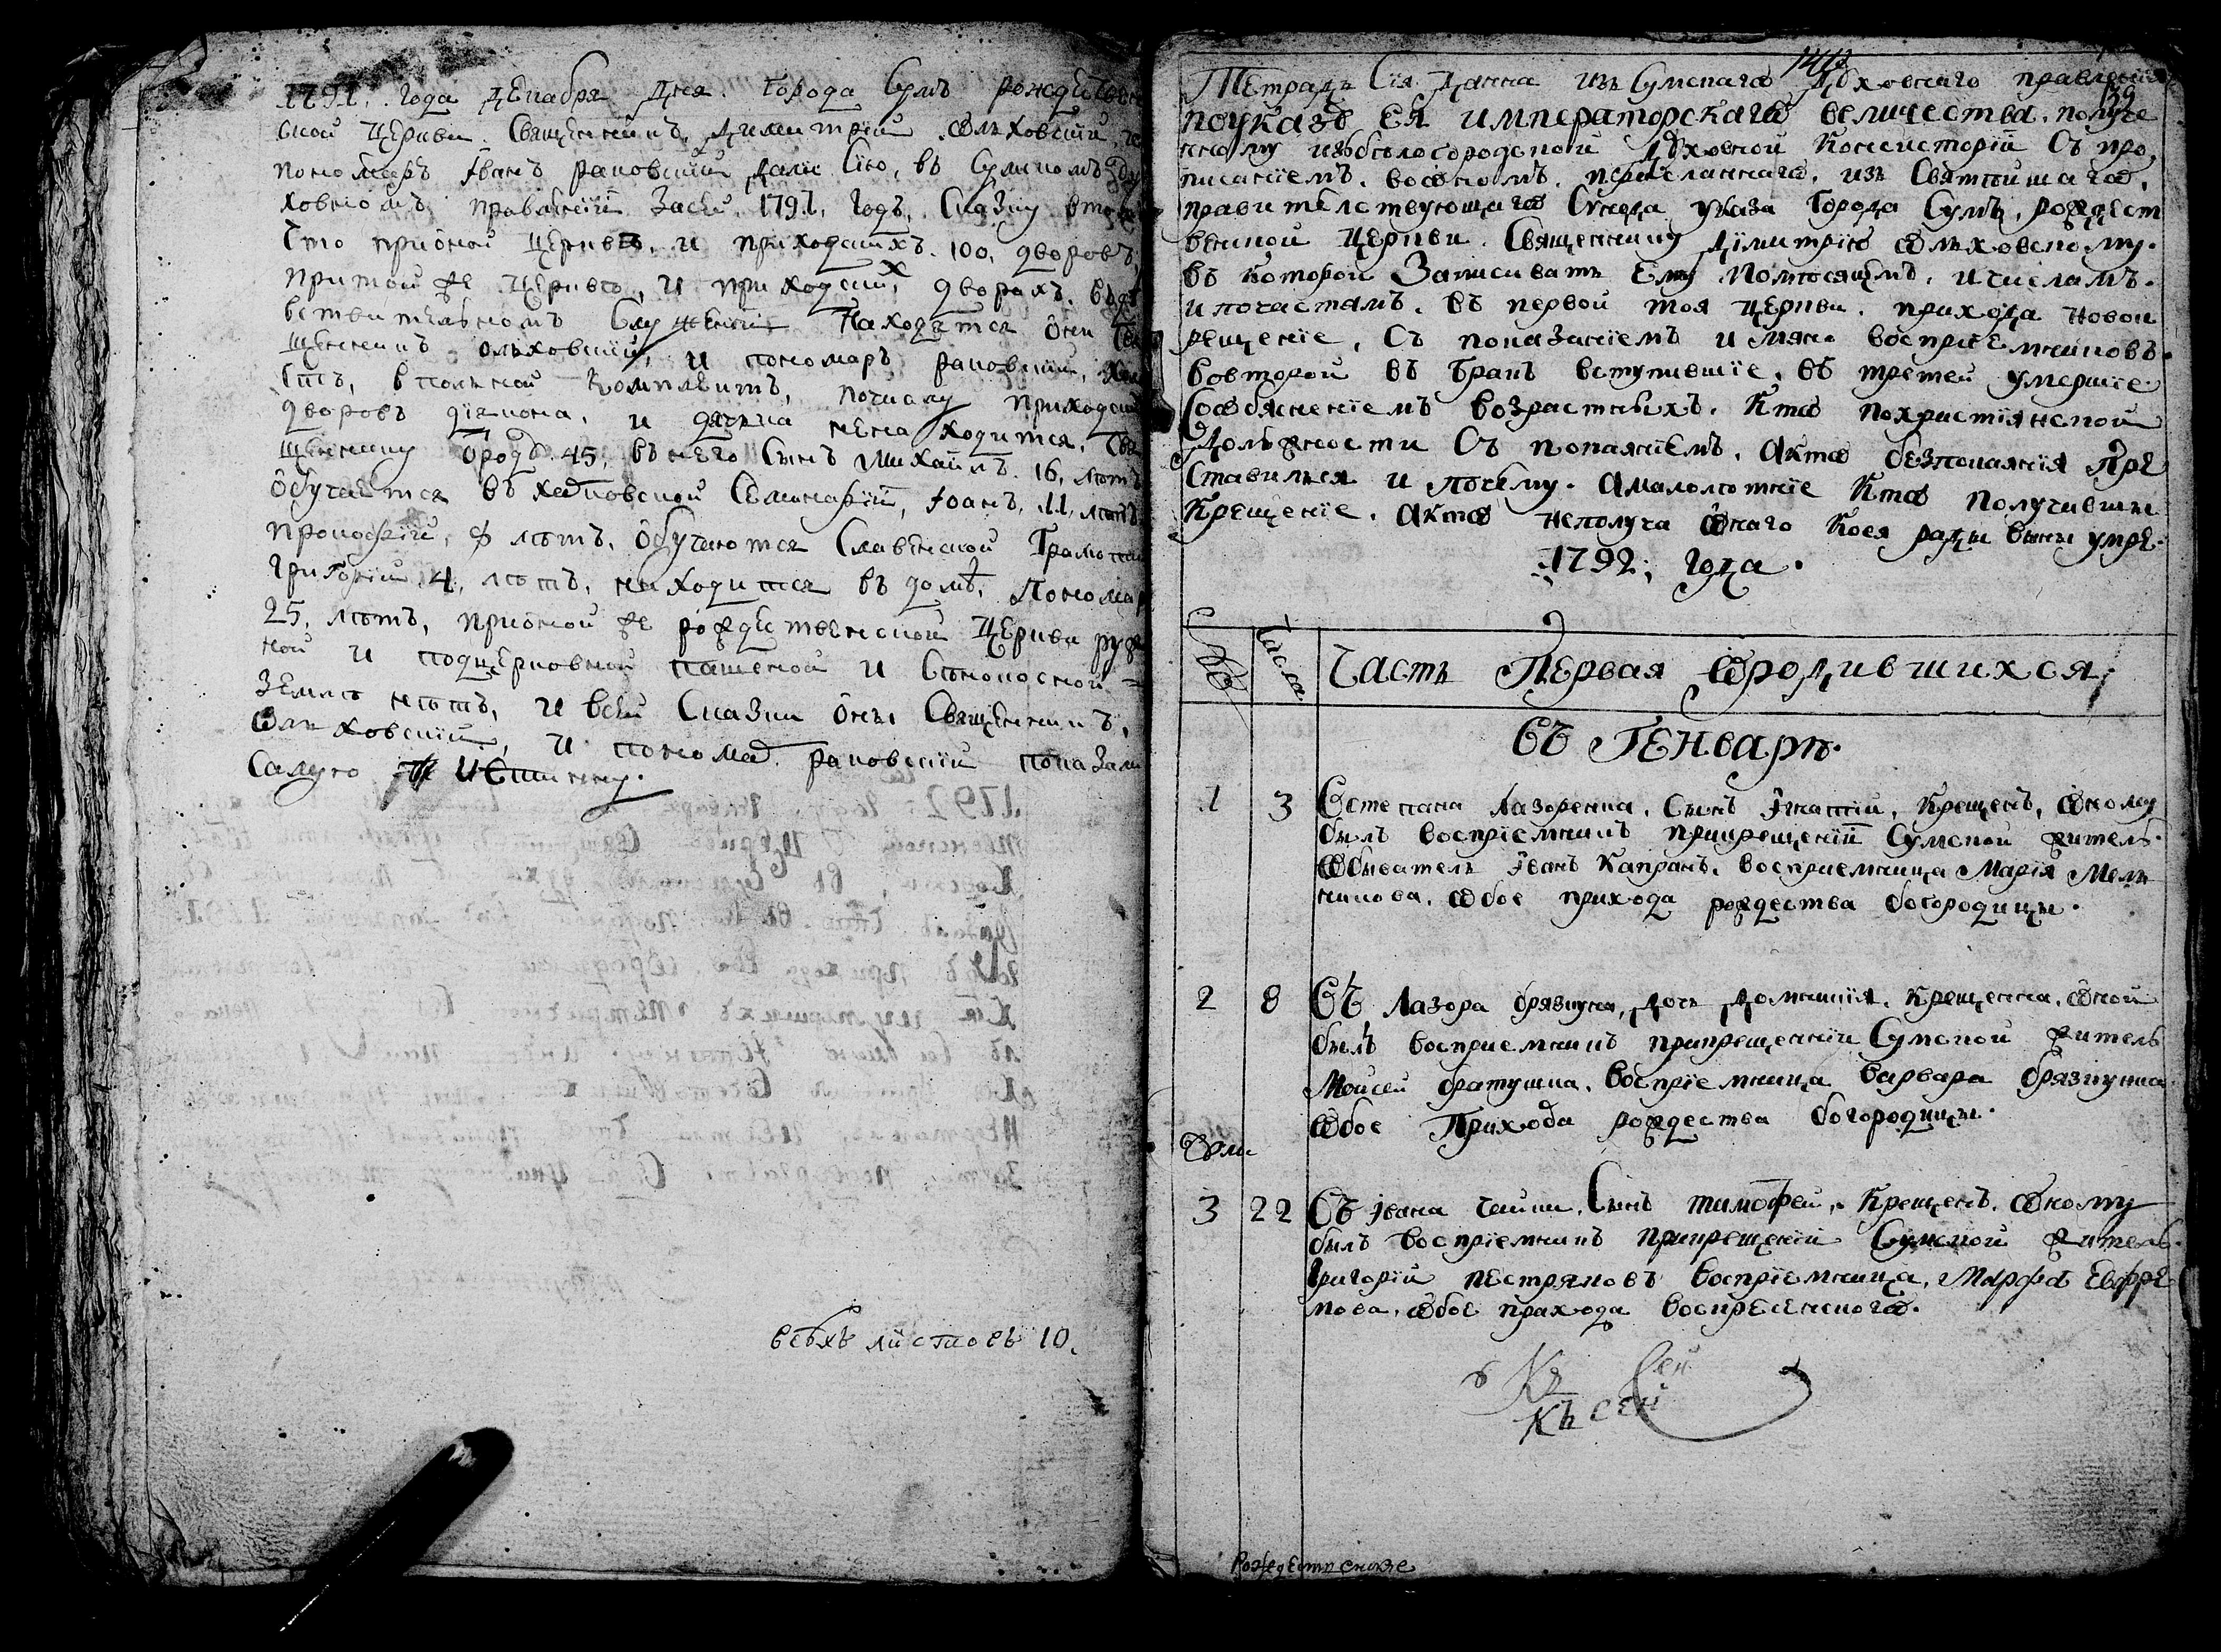 1791. года декабря дня. города Сумъ рождествен
ской церкви. Священникъ, димитрїй ѡльховскїй, и
пономаръ іванъ раковскїй дали сїю, въ Сумскомъ ду
ховномъ правленїй засей, 1791, годъ, Сказку втомъ
Что приѻной церквѣ, и приходскихъ. 100, дворовъ,
притой же церквѣ, и приходскихъ дворахъ. въ дѣй
ствительномъ Служенїй Находятся ѻни Свя
щенникъ ольховскїй, и пономаръ раковскїй,
вполной Комплектъ, почислу приходскихъ
дворовъ дїякона, и дячка ненаходится, Свя
щеннику ѿроду 45, внего Сынъ михаилъ. 16, лѣтъ
ѻбучается въ харковской Семинарїй, іоанъ, 11, лѣтъ
прокофїй, 8 лѣтъ, ѻбучаются Славенской Грамотѣ
григорїй 4, лѣтъ, находится въ домѣ, Пономар
25, лѣтъ, приѻной же рождественской церкви руж
ной и подцерковной пашеной и Сѣнокосной
землѣ нѣтъ, и всей Сказки ѻны Священникъ,
ѡльховскїй, и пономар раковскїй показали
Самую Истинну.
всѣхъ листовъ 10.
1443
139
Тетрадь Сїя Данна изъ Сумскагѡ Духовнаго правленїя
поуказѣ ея императорскагѡ величества, получе
нному избѣлогородской Духовной Консисторїй Съ про
писанїемъ, воѡномъ, присланнагѡ, изъ Святѣйшагѡ,
правителствующагѡ Сѵнода указа Города Сумъ, рождест
венной церкви. Священнику димитрїю ѡльховскому.
въ которой Записивать Ему Помѣсяцамъ, и числамъ.
ипочастямъ. въ первой тоя церкви, прихода новои
рещенїе, Съ показанїемъ имянъ воспрїемниковъ.
вовторой въ бракъ вступившїе. въ третей умершїе.
Сообясненїемъ возрастныхъ. Ктѡ похристїянской
Должности Съ покаянїемъ. Актѡ безпокаянїя Пре
ставилься и почему. Амалолѣтнїе Ктѡ получивши
Крещенїе. Актѡ неполуча ѡнаго Коея ради вины умре.
1792, года.
№
Числа
Часть Первая ѡродившихся,
Въ Генварѣ.
1 3 Встепана Лазоренка, Сынъ Ігнатїй, Крещенъ, ѡному
былъ воспрїемникъ прикрещенїй Сумской житель.
ѡбыватель іванъ Капранъ. воспрїемница Марїя Мель
никова, ѡбое прихода рождества богородицы.
2 8 Въ Лазора брязкуна, дочь домникїя. Крещенна, ѡной
былъ воспрїемникъ прикрещенїи Сумской житель
Мойсей братушка. воспрїемница варвара брязкунка
ѡбое Прихода рождества богородицы.
3 22 Въ івана чайки, Сынъ тимофей, Крещенъ, ѡному
былъ воспрїемникъ прикрещенїи Сумской житель.
Григорїй пестряковъ воспрїемница, Марфа Ефре
мова, ѡбое прихода воскресенскогѡ.
Къ сей
Рождественскїе